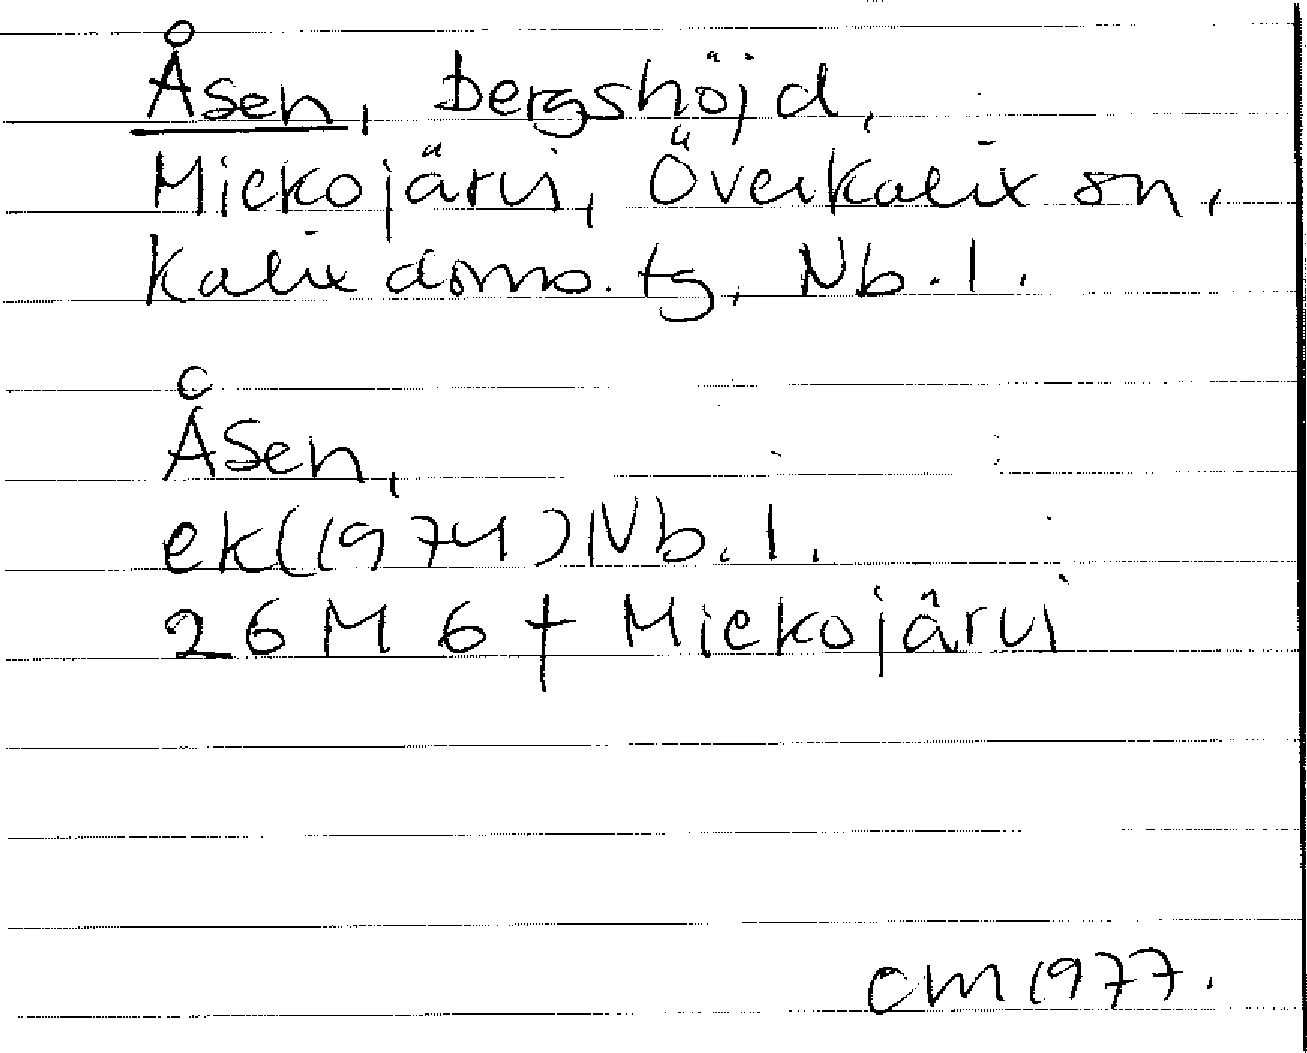 Åsen, bergshöjd,
Miekojärvi, Överkalix sn,
Kalix doms. tg, Nb. l.
Åsen,
ek(1974)Nb. l.
26 M 6 f Miekojärvi
CM 1977.